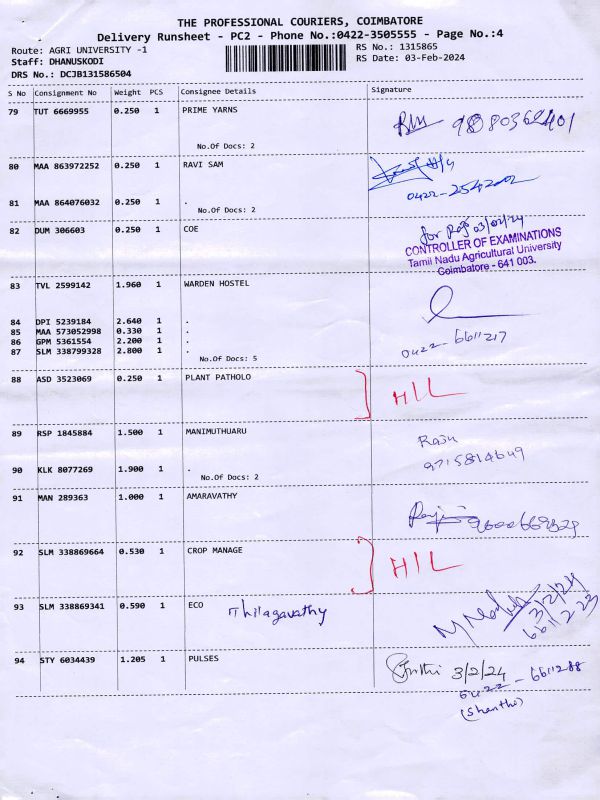 THE PROFESSIONAL COURIERS, COIMBATORE
Delivery Runsheet - PC2 - Phone No.:0422-3505555 - Page No.:4
Route: AGRI UNIVERSITY -1 RS No.: 1315865
Staff: DHANUSKODI RS Date: 03-Feb-2024
DRS No.: DCJB131586504
S No Consignment No Weight PCS Consignee Details Signature
79 TUT 6669955 0.250 1 PRIME YARNS
No.Of Docs: 2
80 MAA 863972252 0.250 1 RAVI SAM
0422-2542002
81 MAA 864076032 0.250 1 .
No.Of Docs: 2
82 DUM 306603 0.250 1 COE
for 03/02/24
CONTROLLER OF EXAMINATIONS
Tamil Nadu Agricultural University
Coimbatore - 641 003.
83 TVL 2599142 1.960 1 WARDEN HOSTEL
84 DPI 5239184 2.640 1 .
85 MAA 573052998 0.330 1 .
86 GPM 5361554 2.200 1 .
87 SLM 338799328 2.800 1 .
No.Of Docs: 5
0422-6611217
88 ASD 3523069 0.250 1 PLANT PATHOLO
H/L
89 RSP 1845884 1.500 1 MANIMUTHUARU
Raju
9715814649
90 KLK 8077269 1.900 1 .
No.Of Docs: 2
91 MAN 289363 1.000 1 AMARAVATHY
92 SLM 338869664 0.530 1 CROP MANAGE
H/L
93 SLM 338869341 0.590 1 ECO Thilagavathy
3/2/24
6611223
94 STY 6034439 1.205 1 PULSES
3/2/24
0422-6611288
(Shanthi)